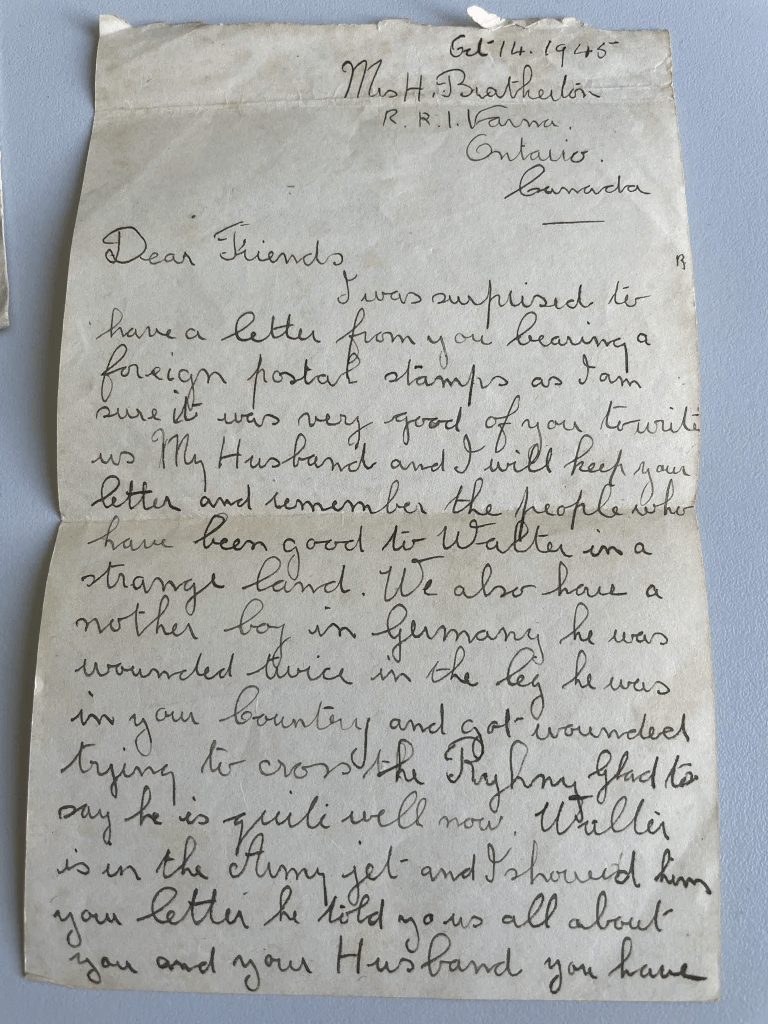 Oct 14. 1945
Mrs H. Bratherton
R. R. 1. Varna.
Ontario.
Canada
Dear Friends
I was surprised to
have a letter from you bearing a
foreign postal stamps as I am
sure it was very good of you to write
us My Husband and I will keep your
letter and remember the people who
have been good to Walter in a
strange land. We also have a
nother boy in Germany he was
wounded twice in the leg he was
in your Country and got wounded
trying to cross the Ryhny Glad to
say he is quite well now. Walter
is in the Army jet and I showed him
your letter he told yo us all about
you and your Husband you have